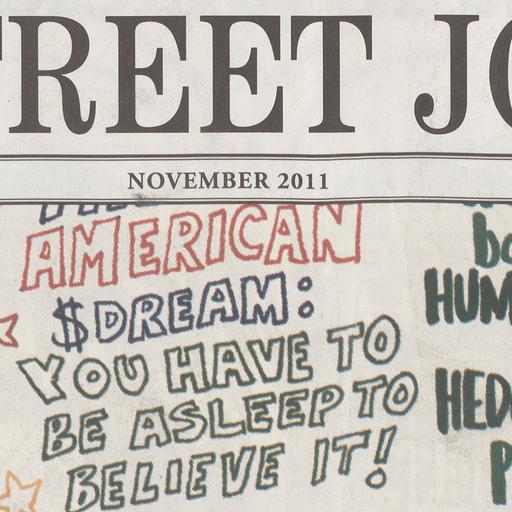 TREET JO
NOVEMBER 2011
THE
AMERICAN
$DREAM:
YOU HAVE TO
BE ASLEEP TO
BELIEVE IT!
bo
HUM
HED
P